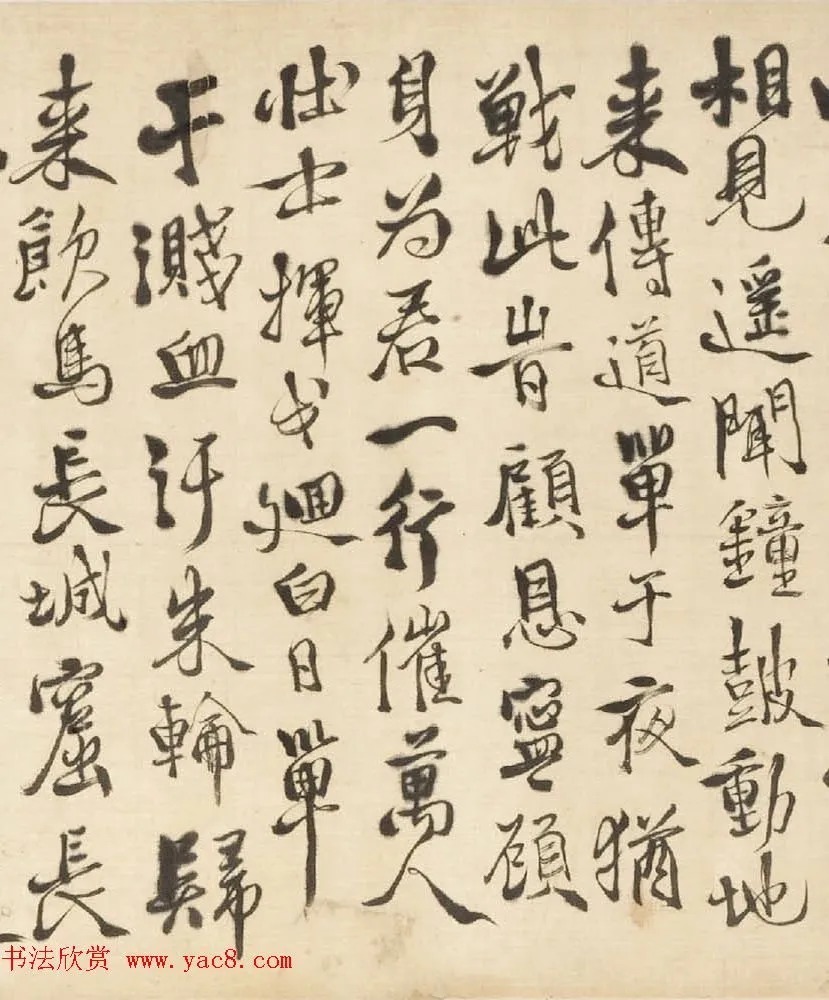 相見遥聞鐘鼓動地
来傳道單于夜猶
戰此昔顧恩寧顧
身為君一行催萬人
壯士揮戈廻白日單
于濺血汙朱輪歸
来飲馬長城窟長
书法欣赏 www.yac8.com